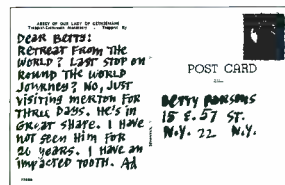 ABBEY OF OUR LADY OF GETHSEMANI
Trappist, Kentucky
DEAR BETTY:
RETREAT FROM THE
WORLD? LAST STOP ON
ROUND THE WORLD
JOURNEY? NO, JUST
VISITING MERTON FOR
THREE DAYS. HE'S IN
GREAT SHAPE. I HAVE
NOT SEEN HIM FOR
20 YEARS. I HAVE AN
IMPACTED TOOTH. Ad
POST CARD
BETTY PARSONS
15 E. 57 ST.
N.Y. 22 N.Y.